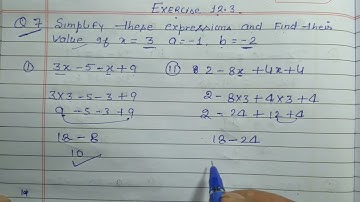 Exercise 12.3.
Q 7 Simplify these expressions and find their
value if x = 3, a = -1, b = -2
(i) 3x - 5 - x + 9
(ii) 2 - 8x + 4x + 4
3×3 - 5 - 3 + 9
2 - 8×3 + 4×3 + 4
9 - 5 - 3 + 9
2 - 24 + 12 + 4
18 - 8
18 - 24
10